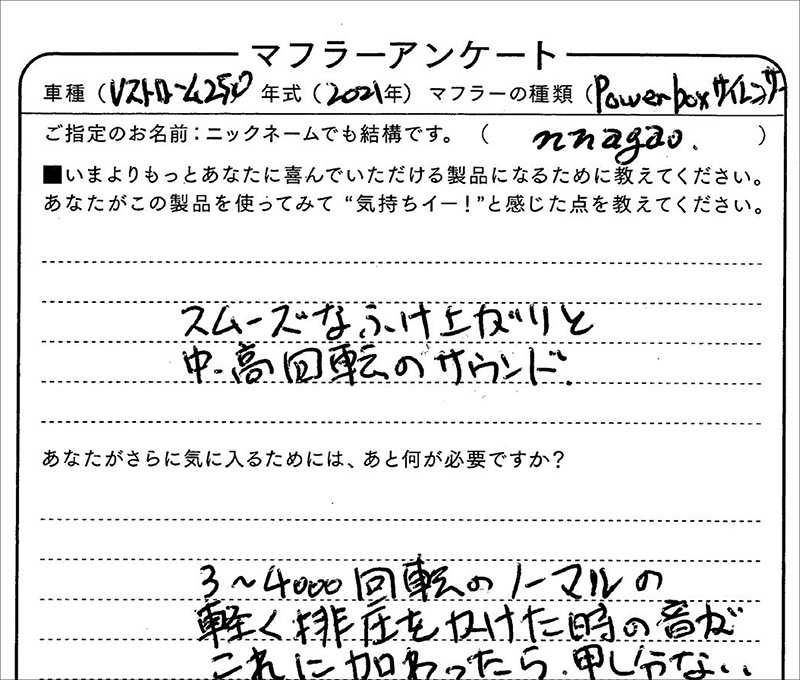 マフラーアンケート
車種（Vストローム250 年式（2021年）マフラーの種類（Powerboxサイレンサー
ご指定のお名前：ニックネームでも結構です。（ nnagao. ）
■いまよりもっとあなたに喜んでいただける製品になるために教えてください。
あなたがこの製品を使ってみて“気持ちイー！”と感じた点を教えてください。
スムーズなふけ上がりと
中.高回転のサウンド.
あなたがさらに気に入るためには、あと何が必要ですか？
3～4000回転のノーマルの
軽く排圧をかけた時の音が
これに加わったら.申し分ない